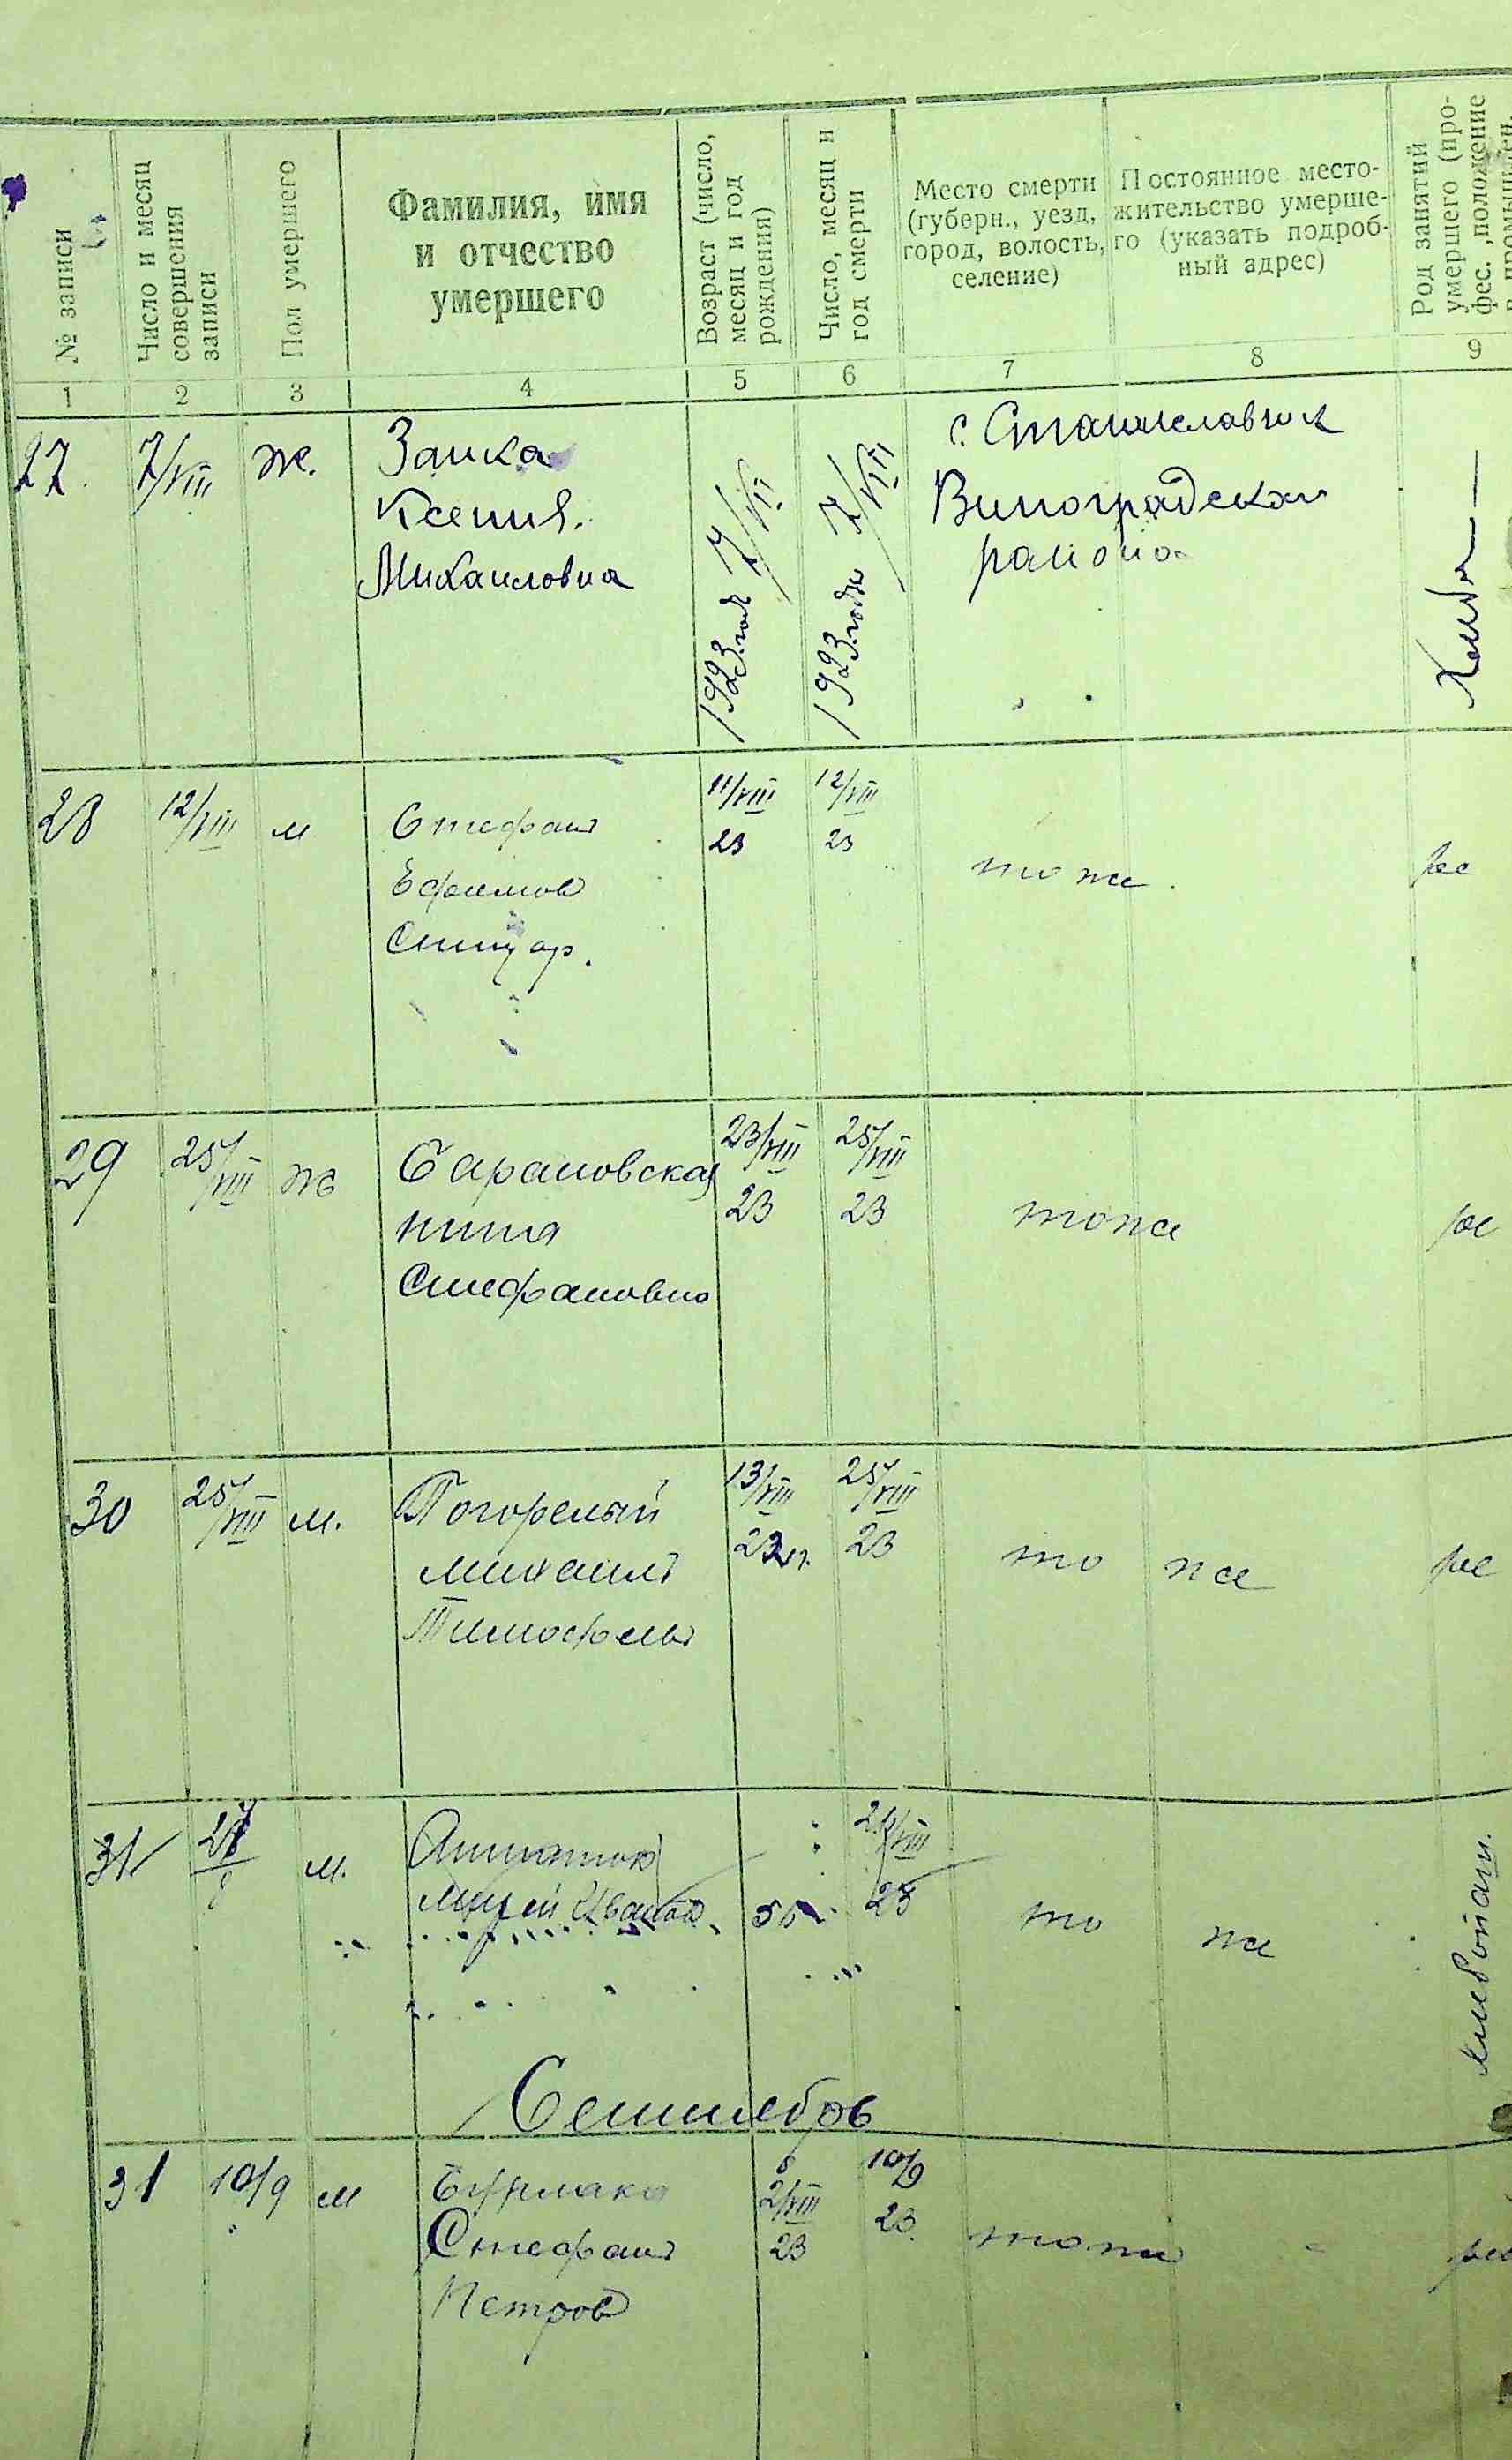 № записи
Число и месяц
совершения
записи
Пол умершего
Фамилия, имя
и отчество
умершего
Возраст (число,
месяц и год
рождения)
Число, месяц и
год смерти
Место смерти
(губерн., уезд,
город, волость,
селение)
Постоянное место-
жительство умерше-
го (указать подроб-
ный адрес)
Род занятий
умершего (про-
фес., положение
1 2 3 4 5 6 7 8 9
27. 7/VIII ж.
Заика
Ксения
Михаиловна
1923 года 7/VII
1923 года 7/VIII
с. Станиславчик
Виноградскаи
раиона
28 12/VIII м
Стефанъ
Ефимов
Слищар.
11/VIII
23
12/VIII
23
тоже
29 25/VIII ж
Барановская
нина
Стефановно
23/VIII
23
25/VIII
23
тоже
30 25/VIII м.
Погорелый
михаилъ
Тимофеев
13/VIII
23
25/VIII
23
то же
31 м.
Иванов
VIII
23
то же
Сентебрь
31 10/9 м
Бурлака
Стефанъ
Петров
2/VIII
23
10/9
23.
тоже